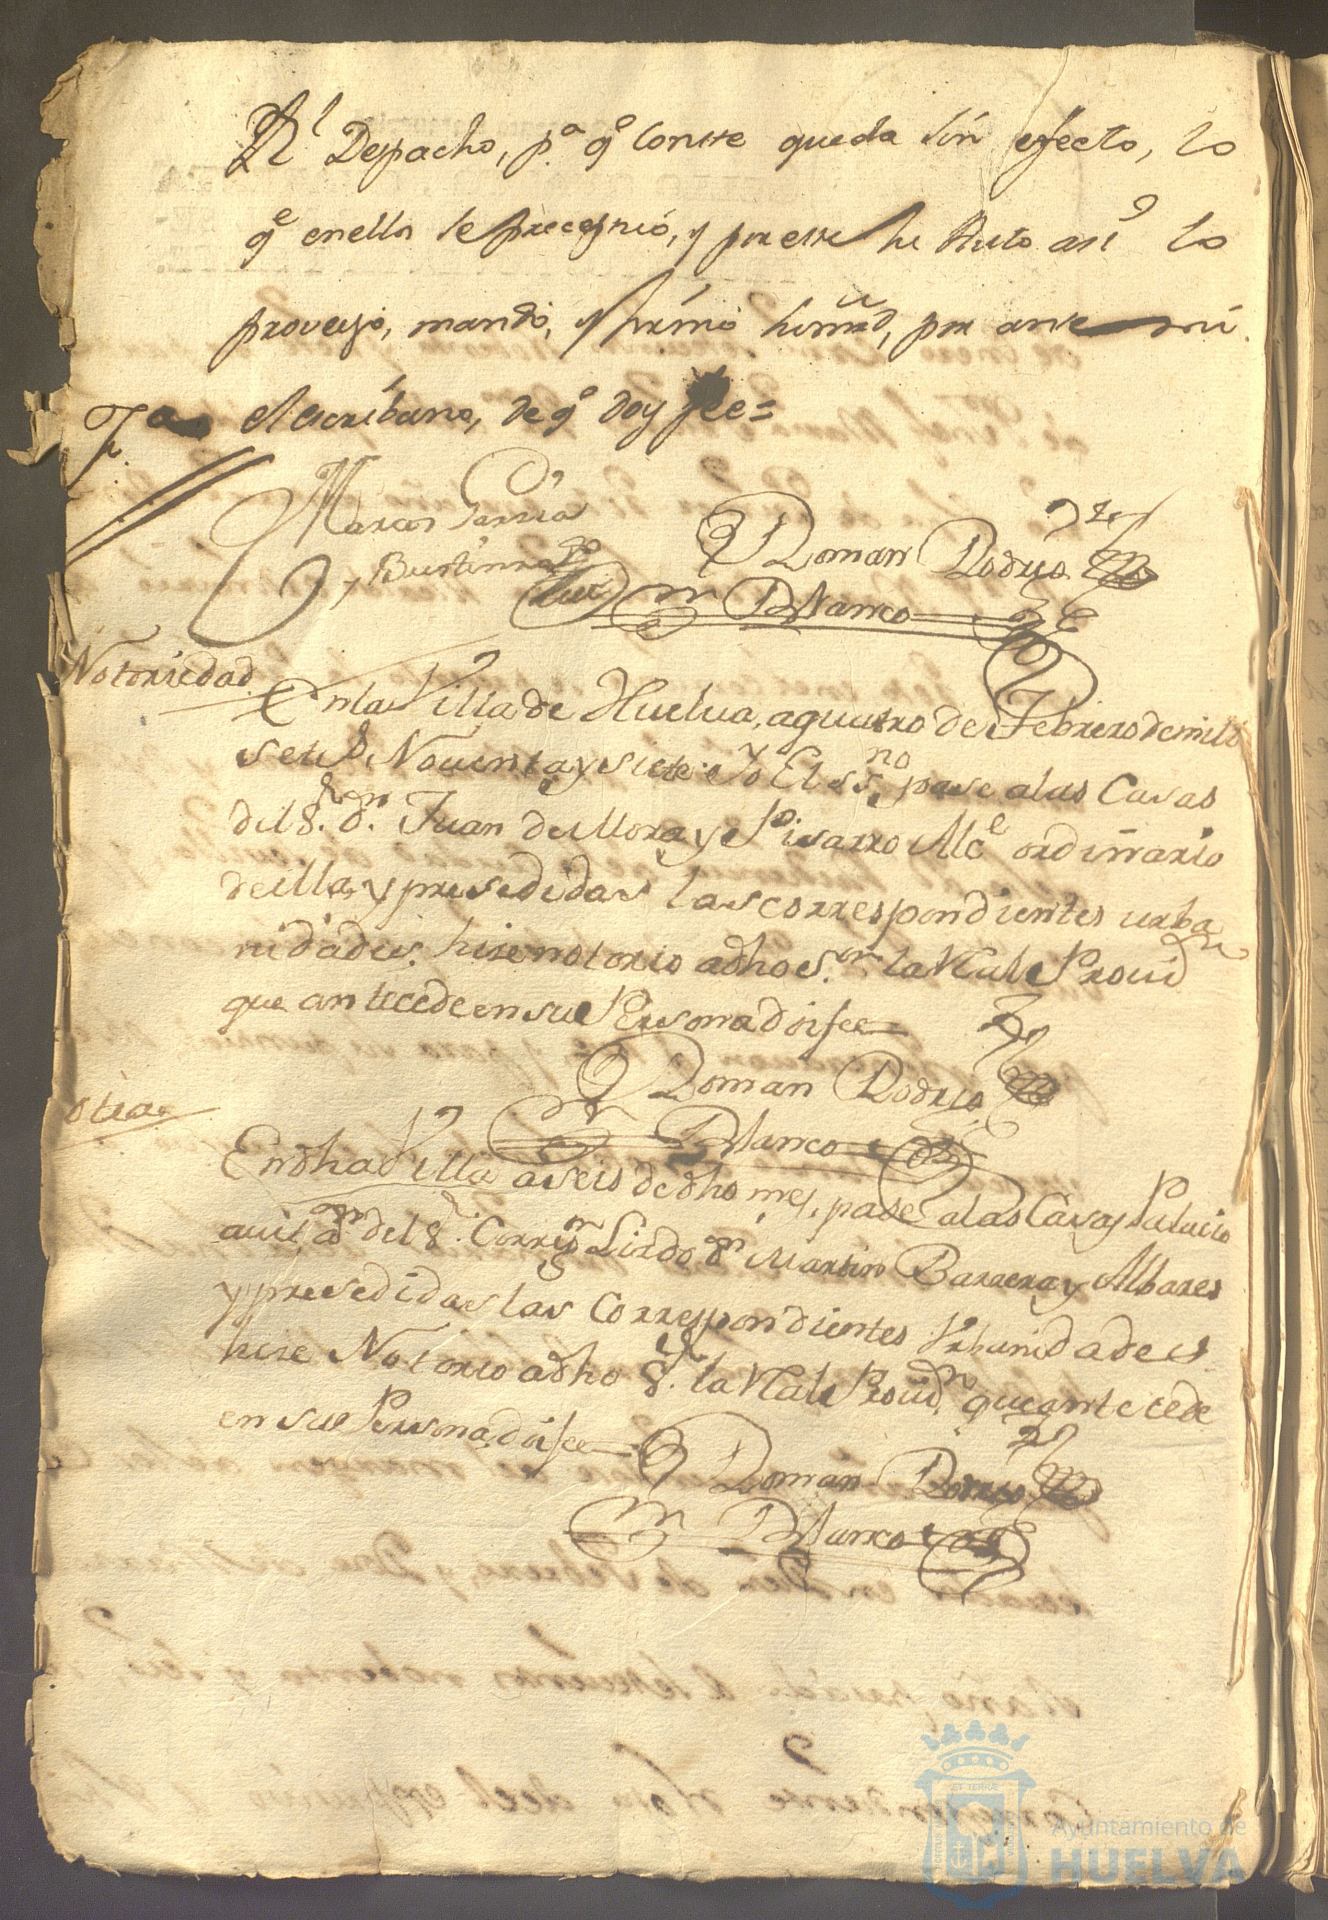 Rl Despacho, pa. qe conste queda sin efecto, lo
qe en ello se preceptuó, y por este su Auto asi lo
proveyó, mandó, y firmó su md, por ante mi
el escribano, de qe doy fee=
Marcos Garcia
y Bustinza
Roman Rodrigz
Blanco
Notoriedad
En la Villa de Huelva, a quatro de Febrero de mill
setts. Noventa y siete yo El ssno pase a las Casas
del Sr. Dn. Juan de Mora y Pisarro Alce ordinnario
de ella, y presedidas las correspondientes urba
nidades, hise notorio a dho Sor. la Rl Provida
que antecede en su Persona doi fee
Roman Rodrigz
Blanco
otra
En dha Villa a seis de dho mes, pase a las Casas Palacio
avitan del Sr. Corregr Lizdo Dn Martin Barrera y Albares
y presedidas las Correspondientes Urbanidades
hise Notorio a dho Sr. la Rl Provida. que antecede
en su Persona doi fee
Roman Rodrigz
Blanco
Ayuntamiento de
HUELVA